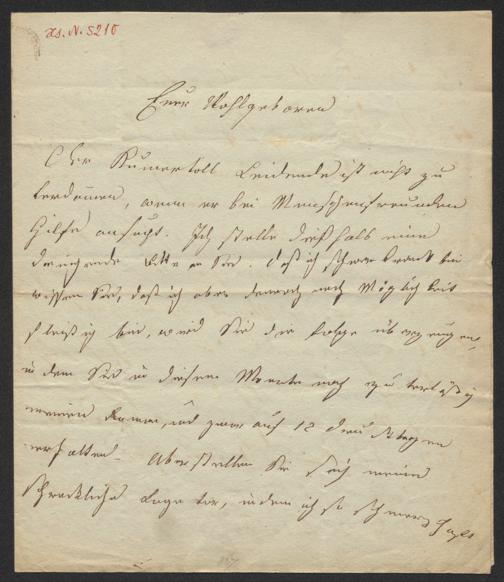 Hs. N. 5210
Euer Wohlgeboren
Der Kumervoll Leidende ist nicht zu
verdamen, wenn er bei Menschenfreunden
Hilfe ansucht. Ich stelle deßhalb eine
dringende Bitte an Sie. Daß ich schwer krank bin
wissen Sie, daß ich aber dennoch nach Möglichkeit
fleißig bin, wird Sie die überzeugen,
in dem Sie in diesem Monate noch zu verläßig
meinen und zwar auf 12 Druckbogen
erhalten. Aber stellen Sie sich meine
schreckliche Lage vor, indem ich so schmerz